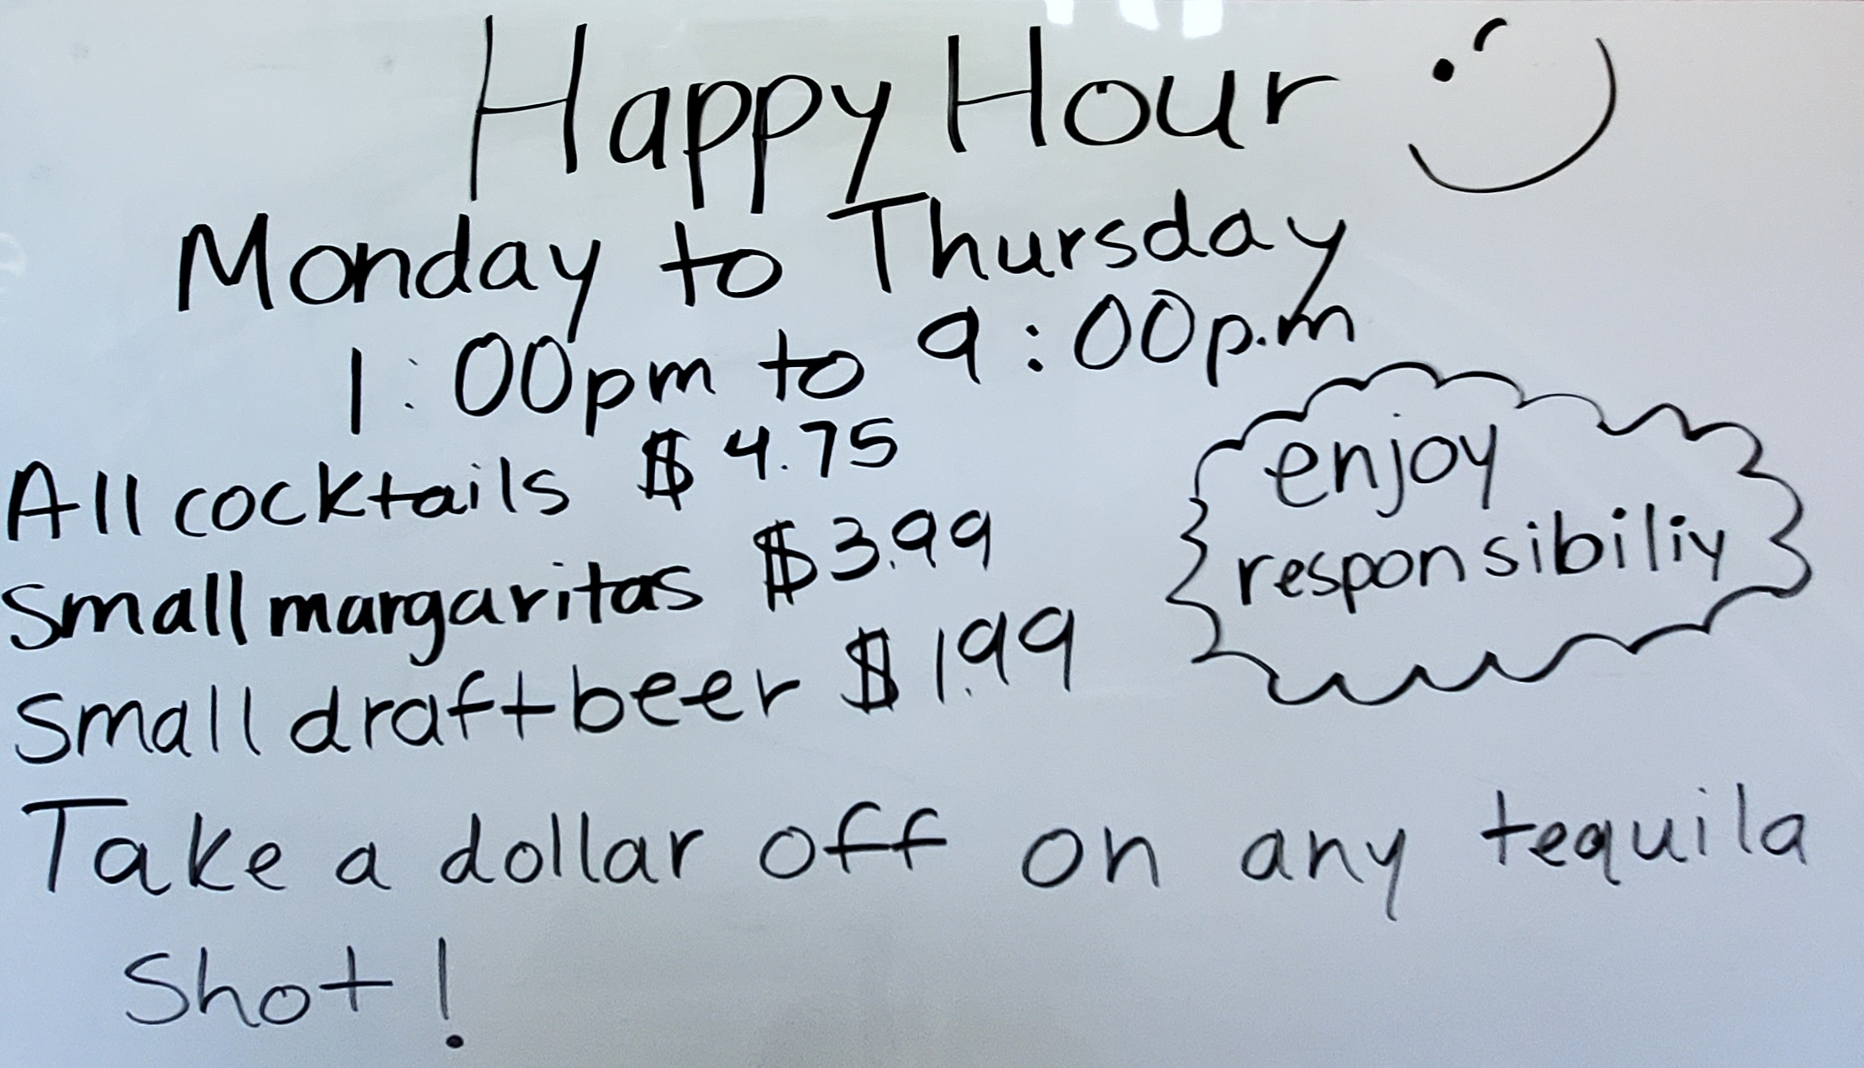 Happy Hour
Monday to Thursday
1:00pm to 9:00p.m
All cocktails $4.75
Small margaritas $3.99
Small draft beer $1.99
enjoy
responsibiliy
Take a dollar off on any tequila
shot!